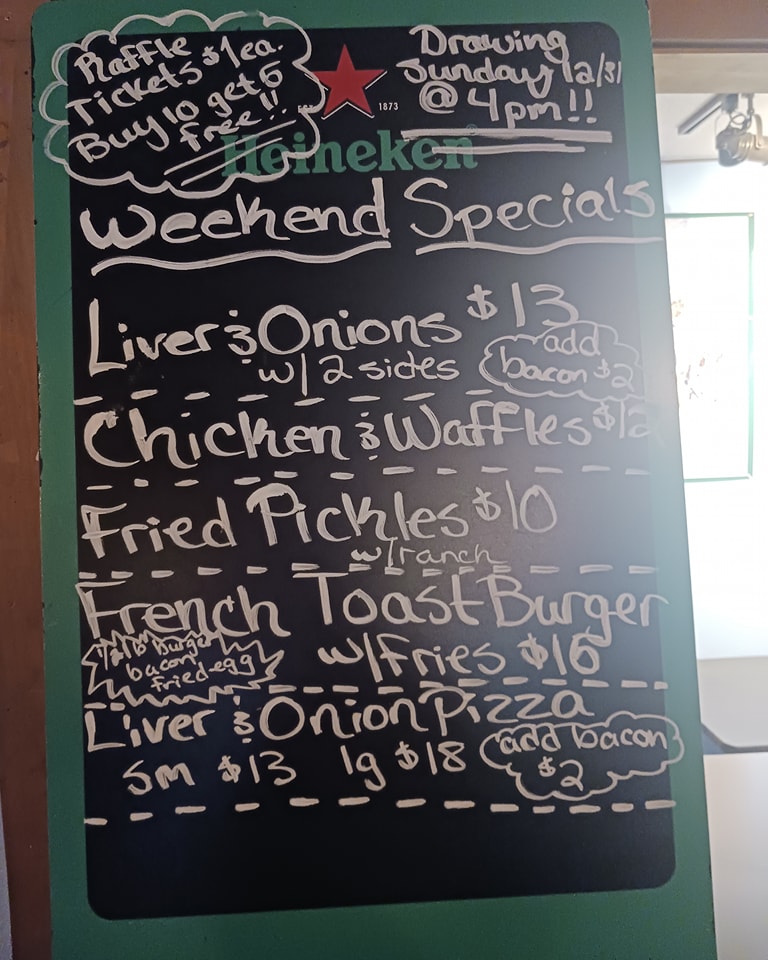 Raffle
Tickets $1 ea.
Buy 10 get 6
free!!
Drawing
Sunday 12/31
@ 4pm!!
1873
Heineken
Weekend Specials
Liver & Onions $13
w/ 2 sides
add
bacon $2
Chicken & Waffles $12
Fried Pickles $10
w/ranch
French Toast Burger
w/fries $16
1/2 lb Burger
bacon
fried egg
Liver & Onion Pizza
sm $13 lg $18
add bacon
$2